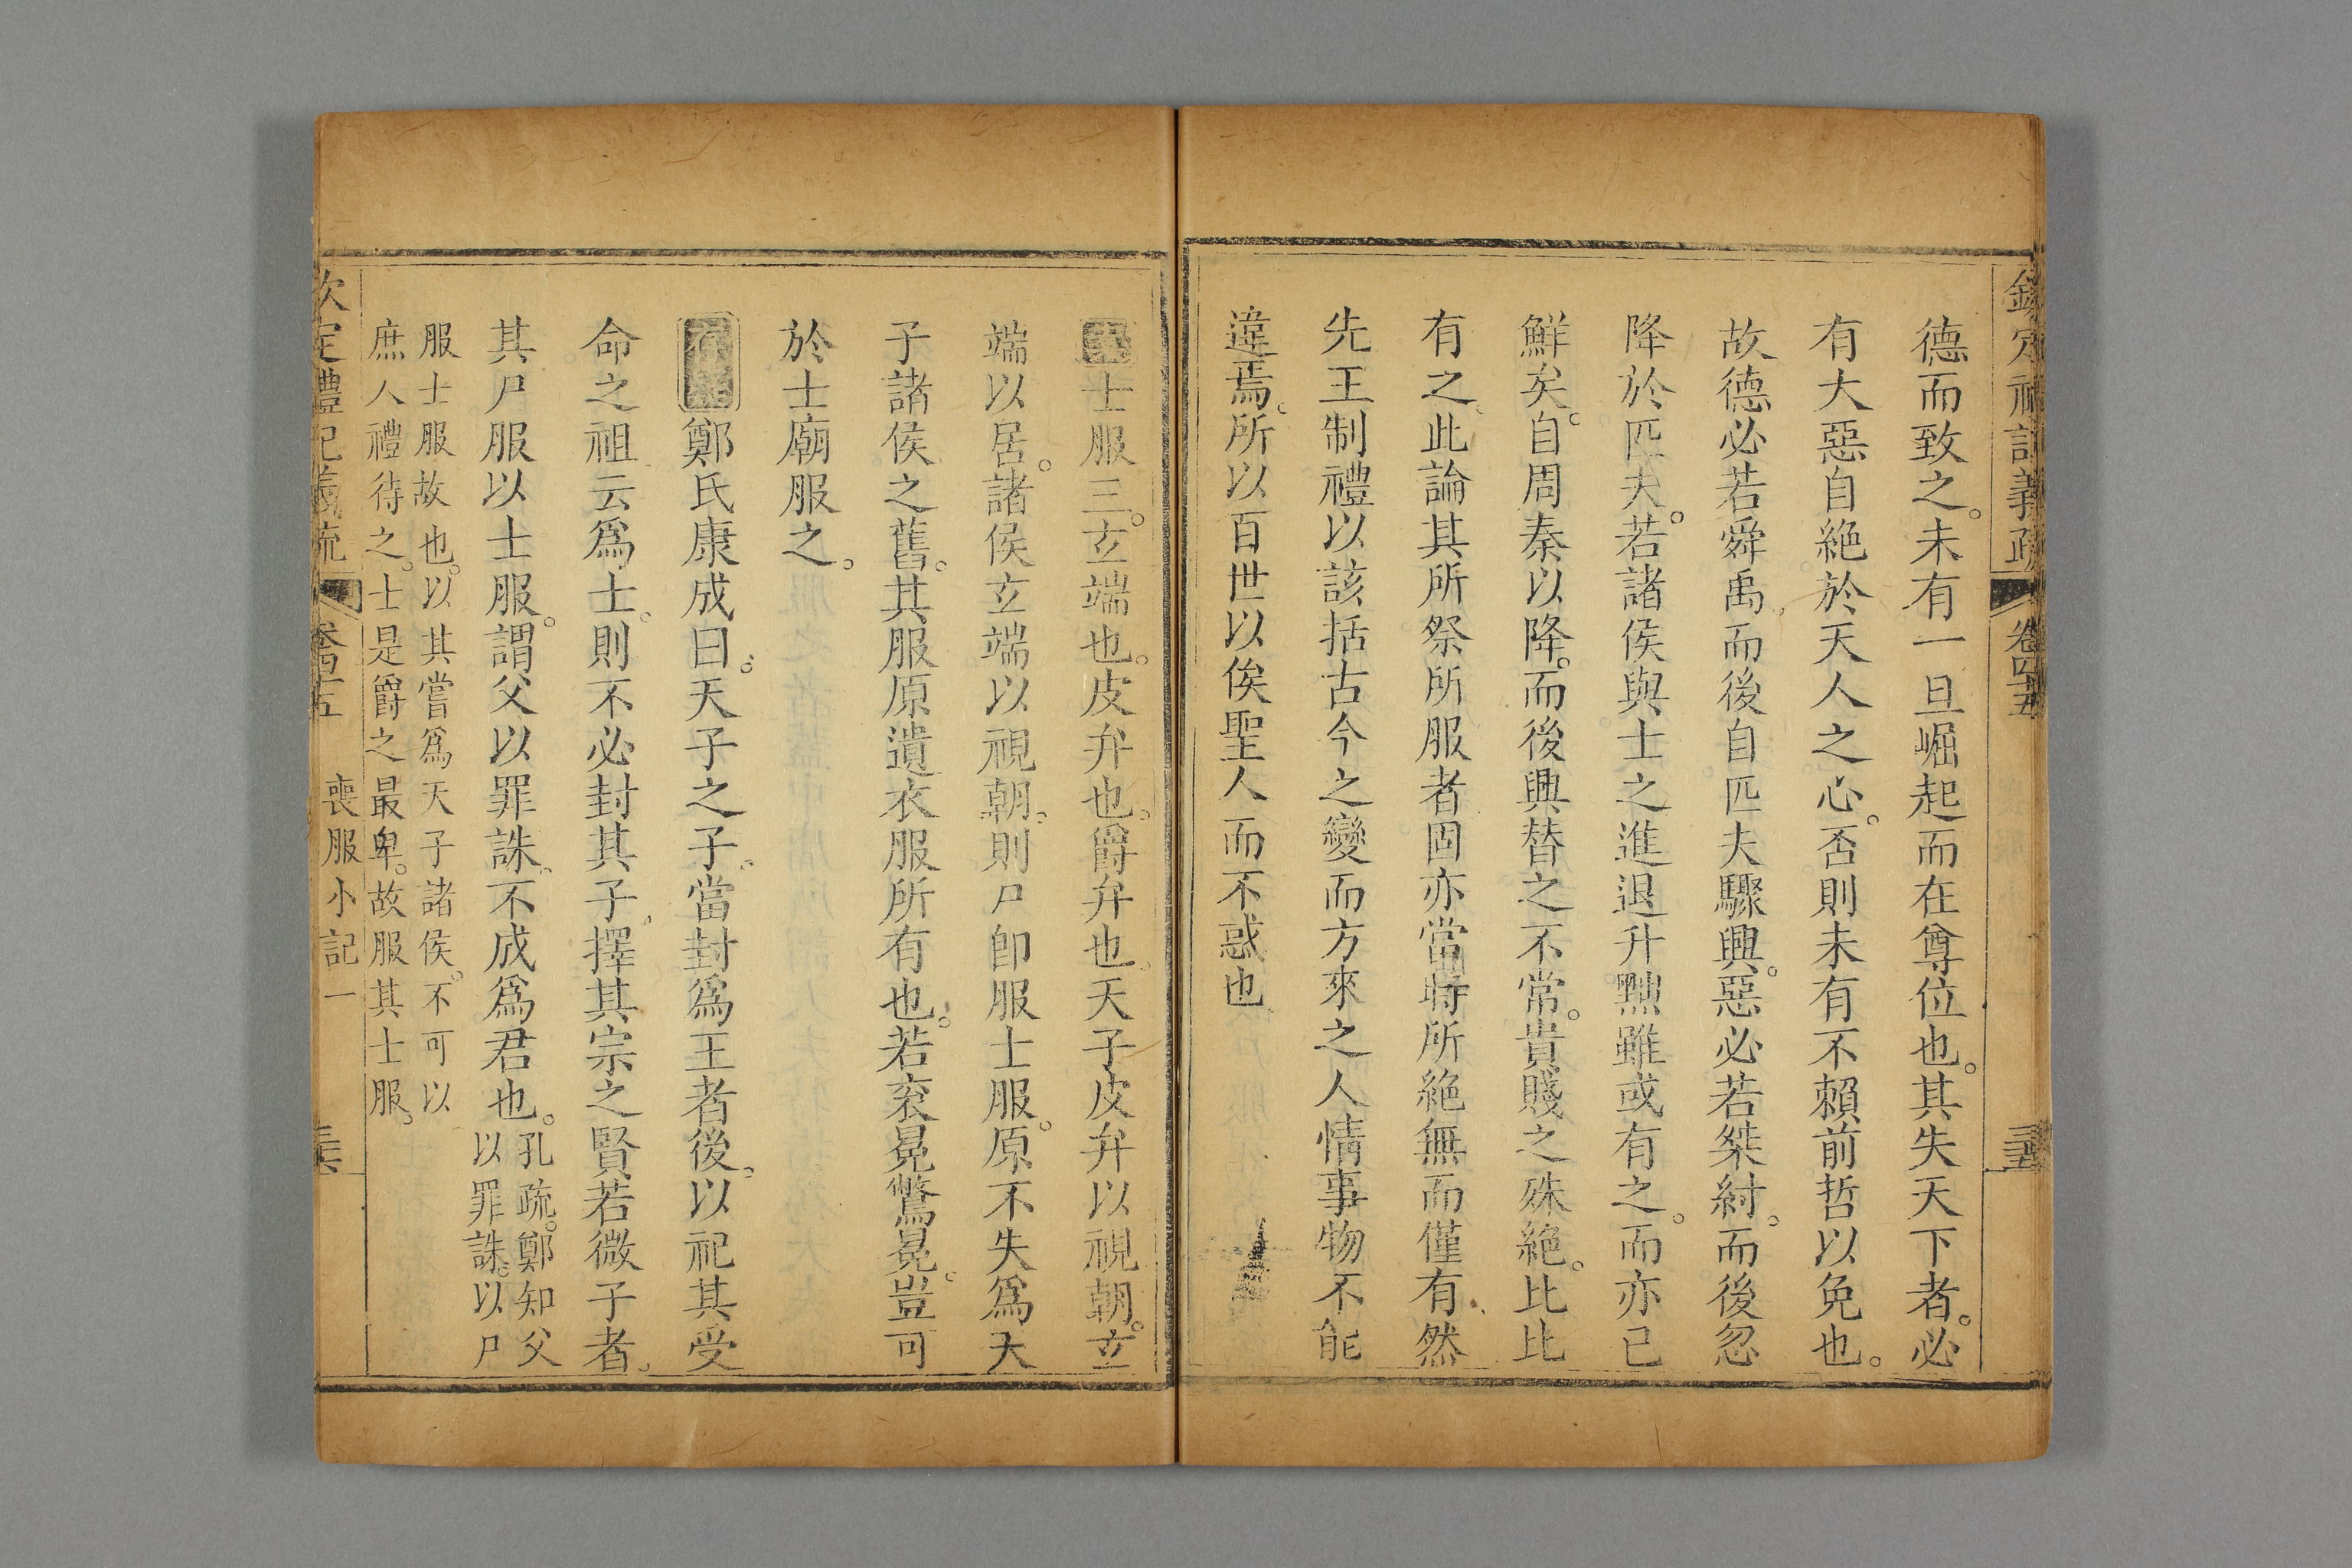 欽定禮記義疏 卷四十五 三十五
德而致之。未有一旦崛起而在尊位也。其失天下者。必
有大惡自絶於天人之心。否則未有不賴前哲以免也。
故德必若舜禹。而後自匹夫驟興。惡必若桀紂。而後忽
降於匹夫。若諸侯與士之進退升黜。雖或有之。而亦已
鮮矣。自周秦以降。而後興替之不常。貴賤之殊絶。比比
有之。此論其所祭所服者。固亦當時所絶無而僅有。然
先王制禮以該括古今之變。而方來之人情事物不能
違焉。所以百世以俟聖人而不惑也
士服三。玄端也。皮弁也。爵弁也。天子皮弁以視朝。玄
端以居。諸侯玄端以視朝。則尸卽服士服。原不失爲天
子諸侯之舊。其服原遺衣服所有也。若衮冕鷩冕。豈可
於士廟服之。
鄭氏康成曰。天子之子。當封爲王者後。以祀其受
命之祖。云爲士。則不必封其子。擇其宗之賢若微子者。
其尸服以士服。謂父以罪誅。不成爲君也。孔疏。鄭知父
以罪誅。以尸
服士服故也。以其嘗爲天子諸侯。不可以
庶人禮待之。士是爵之最卑。故服其士服。
欽定禮記義疏 卷四十五 喪服小記一 三十六